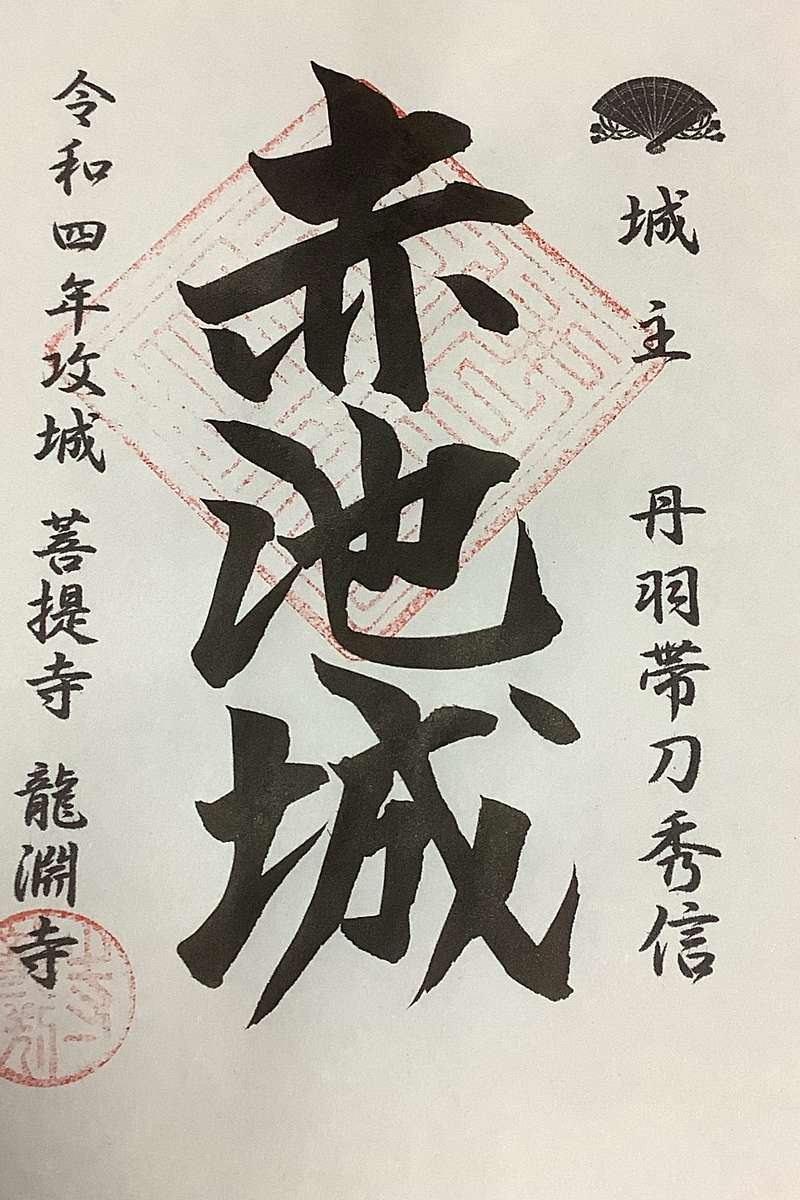 城主 丹羽帯刀秀信
赤池城
令和四年攻城 菩提寺 龍淵寺